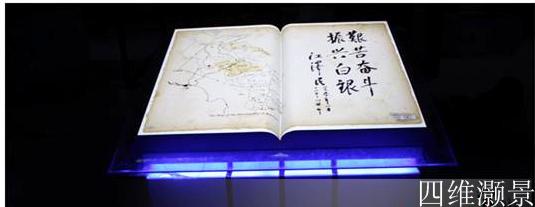 艰苦奋斗
振兴白银
江泽民
四维灏景